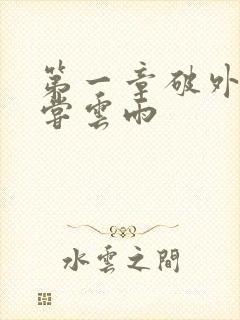 第一章破外
嘗雲雨
水雲之間